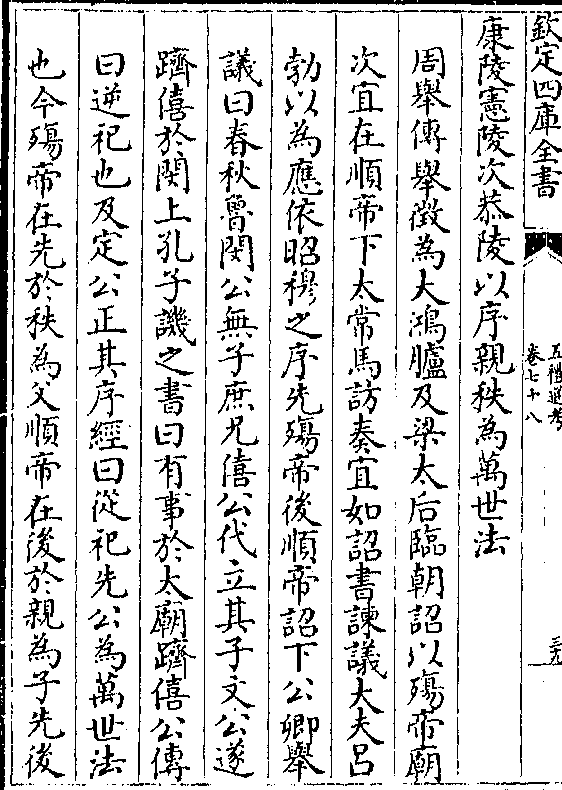 欽定四庫全書
五禮通考
卷七十八
三九
康陵憲陵次恭陵以序親秩為萬世法
周舉傳舉徵為大鴻臚及梁太后臨朝詔以殤帝廟
次宜在順帝下太常馬訪奏宜如詔書諫議大夫呂
勃以為應依昭穆之序先殤帝後順帝詔下公卿舉
議曰春秋魯閔公無子庶兄僖公代立其子文公遂
躋僖於閔上孔子譏之書曰有事於太廟躋僖公傳
曰逆祀也及定公正其序經曰從祀先公為萬世法
也今殤帝在先於秩為父順帝在後於親為子先後